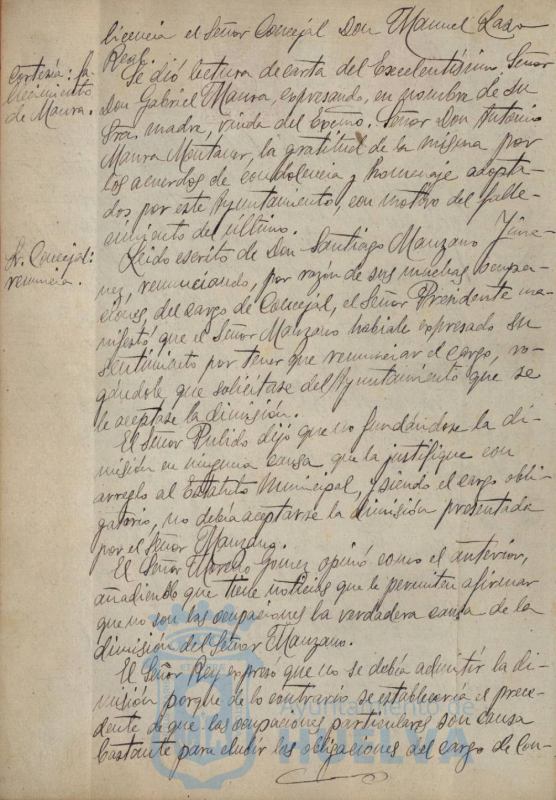 licencia el Señor Concejal Don Manuel Lazo
Real.
Cortesía: fa-
llecimiento
de Maura.
Se dió lectura de carta del Excelentísimo Señor
Don Gabriel Maura, expresando, en nombre de su
Sra. madre, viuda del Excmo. Señor Don Antonio
Maura Montaner, la gratitud de la misma por
los acuerdos de condolencia y homenaje adopta-
dos por este Ayuntamiento, con motivo del falle-
cimiento del último.
Sr. Concejal:
renuncia.
Leido escrito de Don Santiago Manzano Jime-
nez, renunciando, por razón de sus muchas ocupa-
ciones, del cargo de Concejal, el Señor Presidente ma-
nifestó que el Señor Manzano habíale expresado su
sentimiento por tener que renunciar el cargo, ro-
gándole que solicitase del Ayuntamiento que se
le aceptase la dimisión.
El Señor Pulido dijo que no fundándose la di-
misión en ninguna causa que la justifique con
arreglo al Estatuto Municipal, y siendo el cargo obli-
gatorio, no debía aceptarse la dimisión presentada
por el Señor Manzano.
El Señor Moreno Gomez opinó como el anterior,
añadiendo que tiene noticias que le permiten afirmar
que no son las ocupaciones la verdadera causa de la
dimisión del Señor Manzano.
El Señor Rey expresó que no se debía admitir la di-
misión porque de lo contrario se establecería el prece-
dente de que las ocupaciones particulares son causa
bastante para eludir las obligaciones del cargo de Con-
Ayuntamiento de
HUELVA